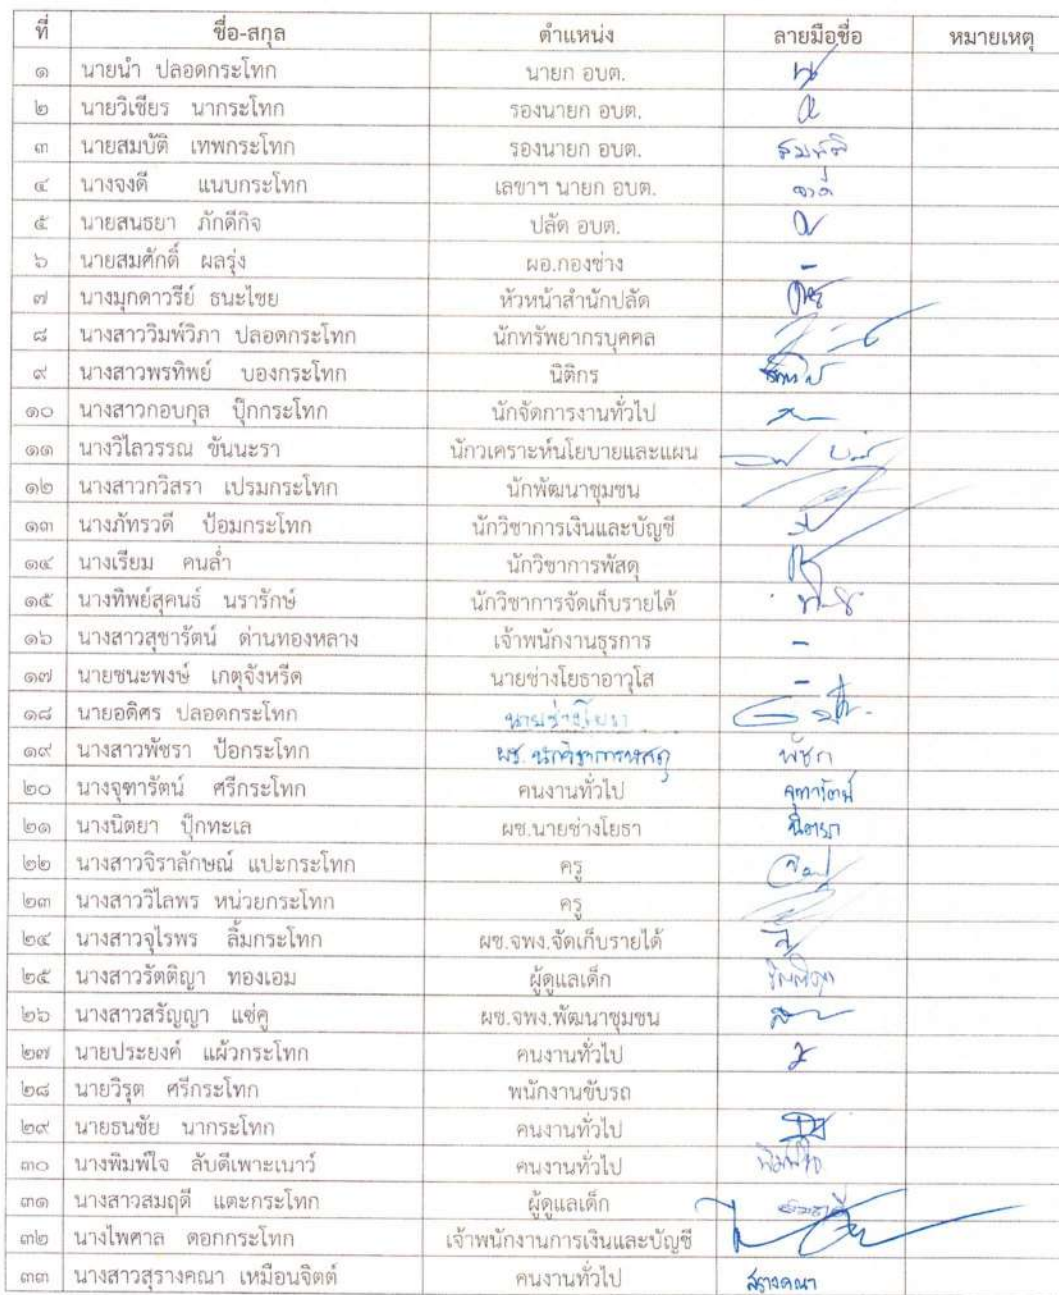 ที่ ชื่อ-สกุล ตำแหน่ง ลายมือชื่อ หมายเหตุ
๑ นายนำ ปลอดกระโทก นายก อบต.
๒ นายวิเชียร นากระโทก รองนายก อบต.
๓ นายสมบัติ เทพกระโทก รองนายก อบต. สมบัติ
๔ นางจงดี แนบกระโทก เลขาฯ นายก อบต. จงดี
๕ นายสนธยา ภักดีกิจ ปลัด อบต.
๖ นายสมศักดิ์ ผลรุ่ง ผอ.กองช่าง -
๗ นางมุกดาวรีย์ ธนะไชย หัวหน้าสำนักปลัด
๘ นางสาววิมพ์วิภา ปลอดกระโทก นักทรัพยากรบุคคล
๙ นางสาวพรทิพย์ บองกระโทก นิติกร
๑๐ นางสาวกอบกุล ปุ๊กกระโทก นักจัดการงานทั่วไป
๑๑ นางวิไลวรรณ ขันนะรา นักวเคราะห์นโยบายและแผน
๑๒ นางสาวกวิสรา เปรมกระโทก นักพัฒนาชุมชน
๑๓ นางภัทรวดี ป้อมกระโทก นักวิชาการเงินและบัญชี
๑๔ นางเรียม คนล่ำ นักวิชาการพัสดุ
๑๕ นางทิพย์สุคนธ์ นรารักษ์ นักวิชาการจัดเก็บรายได้
๑๖ นางสาวสุชารัตน์ ด่านทองหลาง เจ้าพนักงานธุรการ -
๑๗ นายชนะพงษ์ เกตุจังหรีด นายช่างโยธาอาวุโส -
๑๘ นายอดิศร ปลอดกระโทก นายช่างโยธา
๑๙ นางสาวพัชรา ป้อกระโทก ผช. นักวิชาการพัสดุ พัชรา
๒๐ นางจุฑารัตน์ ศรีกระโทก คนงานทั่วไป จุฑารัตน์
๒๑ นางนิตยา ปุ๊กทะเล ผช.นายช่างโยธา นิตยา
๒๒ นางสาวจิราลักษณ์ แปะกระโทก ครู
๒๓ นางสาววิไลพร หน่วยกระโทก ครู
๒๔ นางสาวจุไรพร ลิ้มกระโทก ผช.จพง.จัดเก็บรายได้
๒๕ นางสาวรัตติญา ทองเอม ผู้ดูแลเด็ก รัตติญา
๒๖ นางสาวสรัญญา แซ่คู ผช.จพง.พัฒนาชุมชน
๒๗ นายประยงค์ แผ้วกระโทก คนงานทั่วไป
๒๘ นายวิรุต ศรีกระโทก พนักงานขับรถ
๒๙ นายธนชัย นากระโทก คนงานทั่วไป
๓๐ นางพิมพ์ใจ ลับดีเพาะเนาว์ คนงานทั่วไป พิมพ์ใจ
๓๑ นางสาวสมฤดี แตะกระโทก ผู้ดูแลเด็ก
๓๒ นางไพศาล ดอกกระโทก เจ้าพนักงานการเงินและบัญชี
๓๓ นางสาวสุรางคณา เหมือนจิตต์ คนงานทั่วไป สุรางคณา